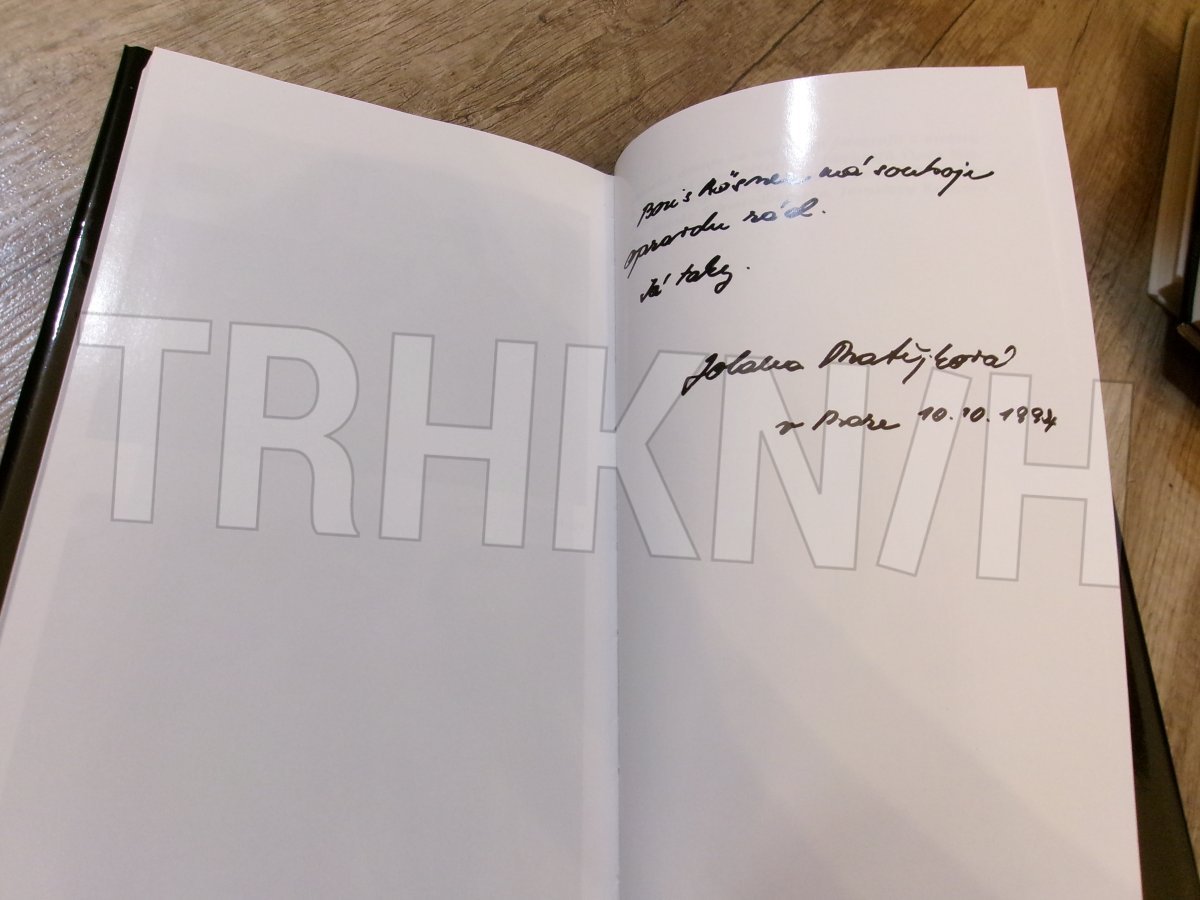 Boris Rösner má souboje
opravdu rád.
Já taky.
Jolana Matějková
v Praze 10.10.1994
TRHKNIH